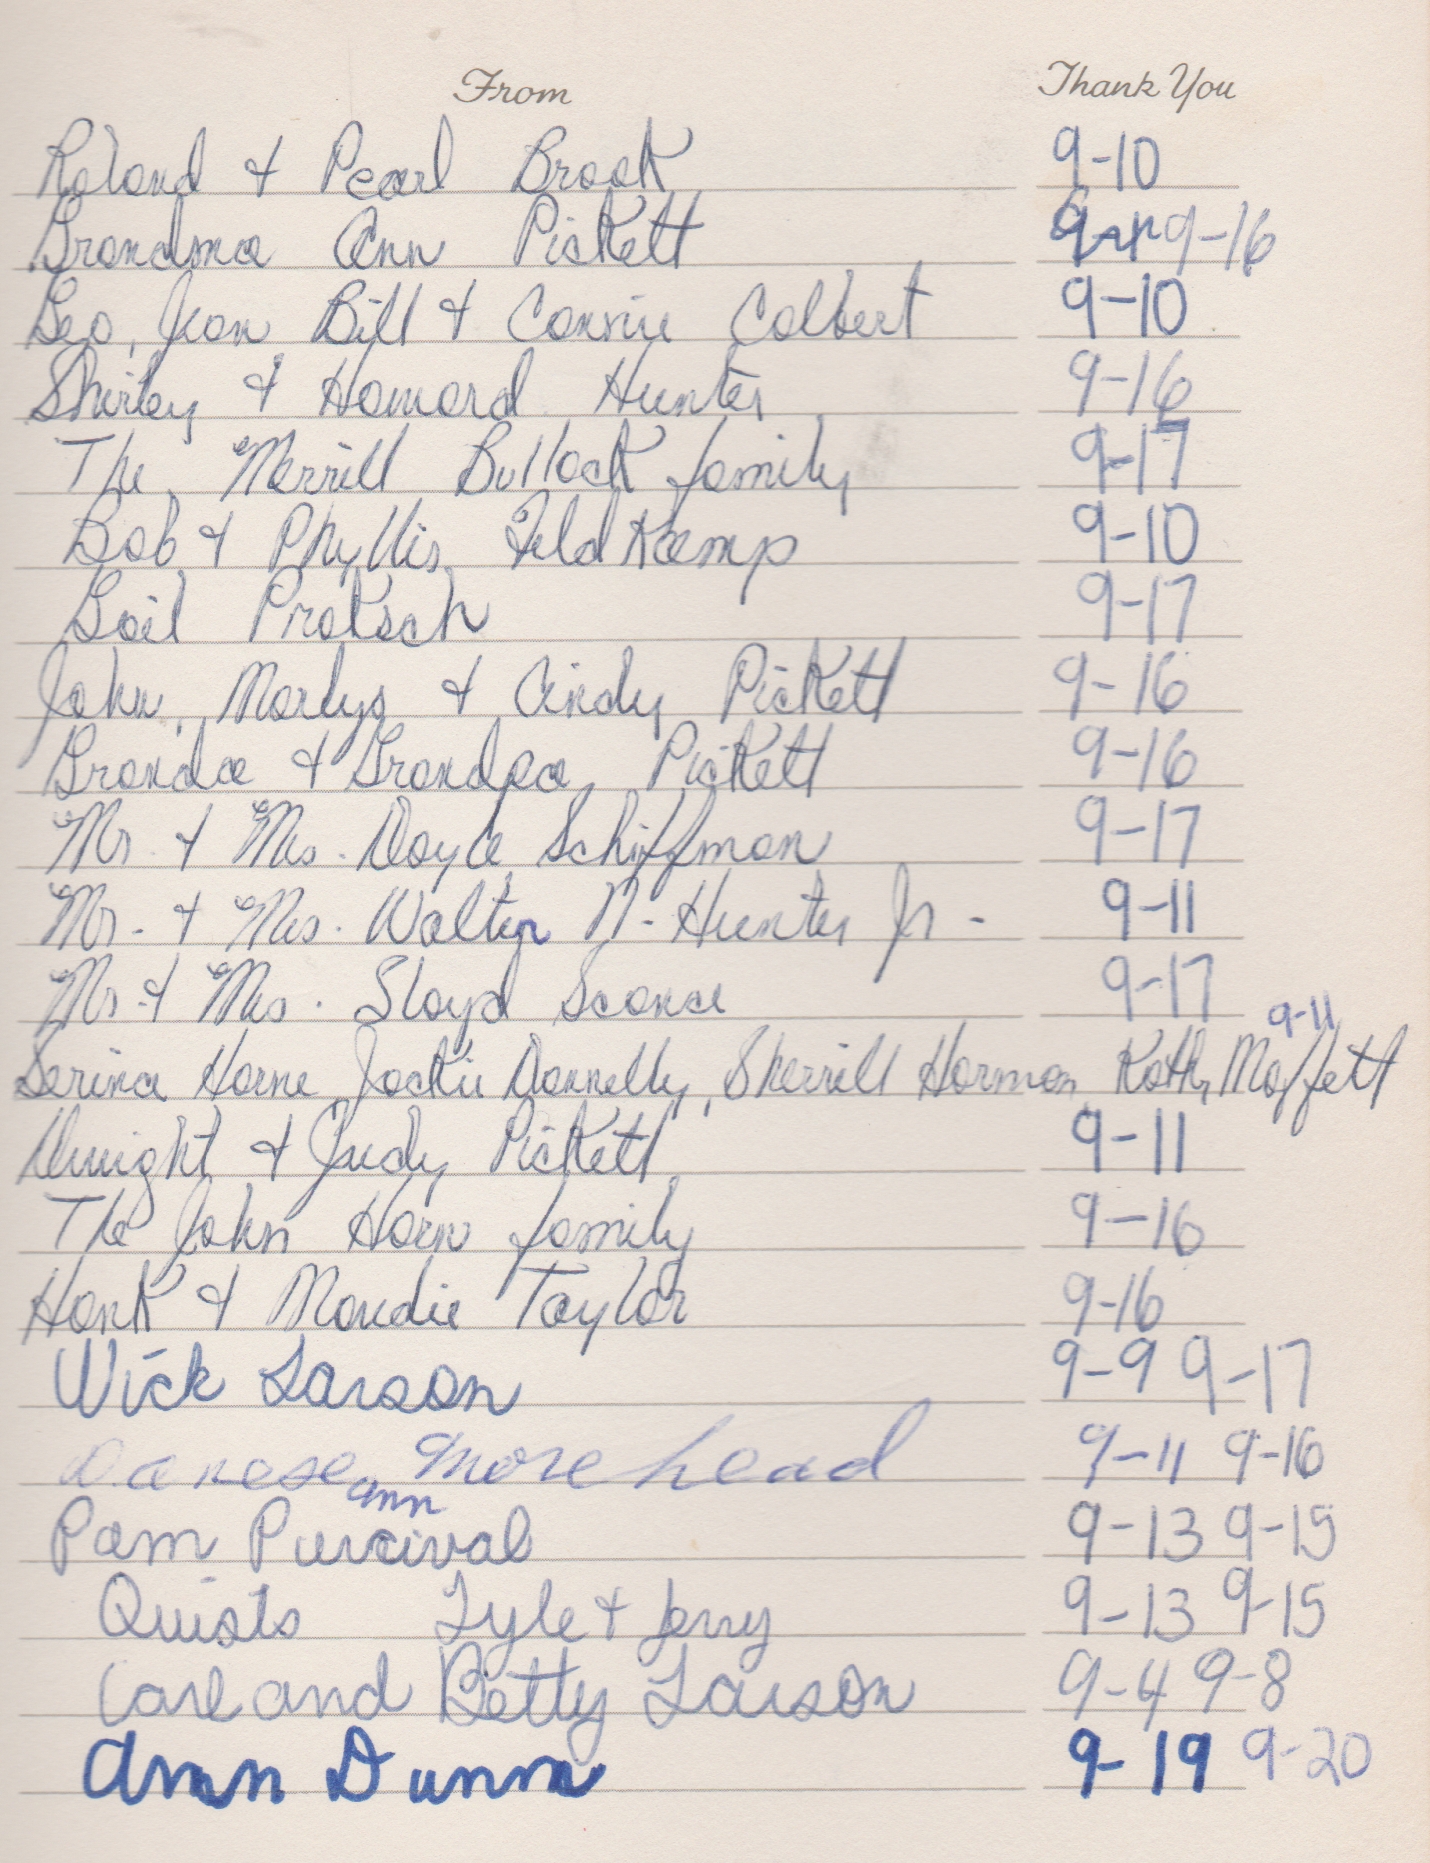 From Thank You
Roland & Pearl Brook 9-10
Grandma Ann Pickett 9-16
Geo, Jean Bill & Connie Colbert 9-10
Shirley & Howard Hunter 9-16
The Merrill Bullock family 9-17
Bob & Phyllis FeldKamp 9-10
Gail Pratsch 9-17
John, Marlys & Cindy Pickett 9-16
Granda & Grandpa Pickett 9-16
Mr. & Mrs. Doyle Schiffman 9-17
Mr. & Mrs. Walter N. Hunter Jr. 9-11
Mr. & Mrs. Floyd Sconce 9-17
9-11
Serina Horne, Jackie Donnelly, Sherrill Harmon, Kathy Moffett
Dwight & Judy Pickett 9-11
The John Horn family 9-16
Hank & Maudie Taylor 9-16
Wick Larson 9-9 9-17
Danese Morehead 9-11 9-16
ann
Pam Purcival 9-13 9-15
Quists Lyle & Jerry 9-13 9-15
Carl and Betty Larson 9-4 9-8
Ann Dunn 9-19 9-20